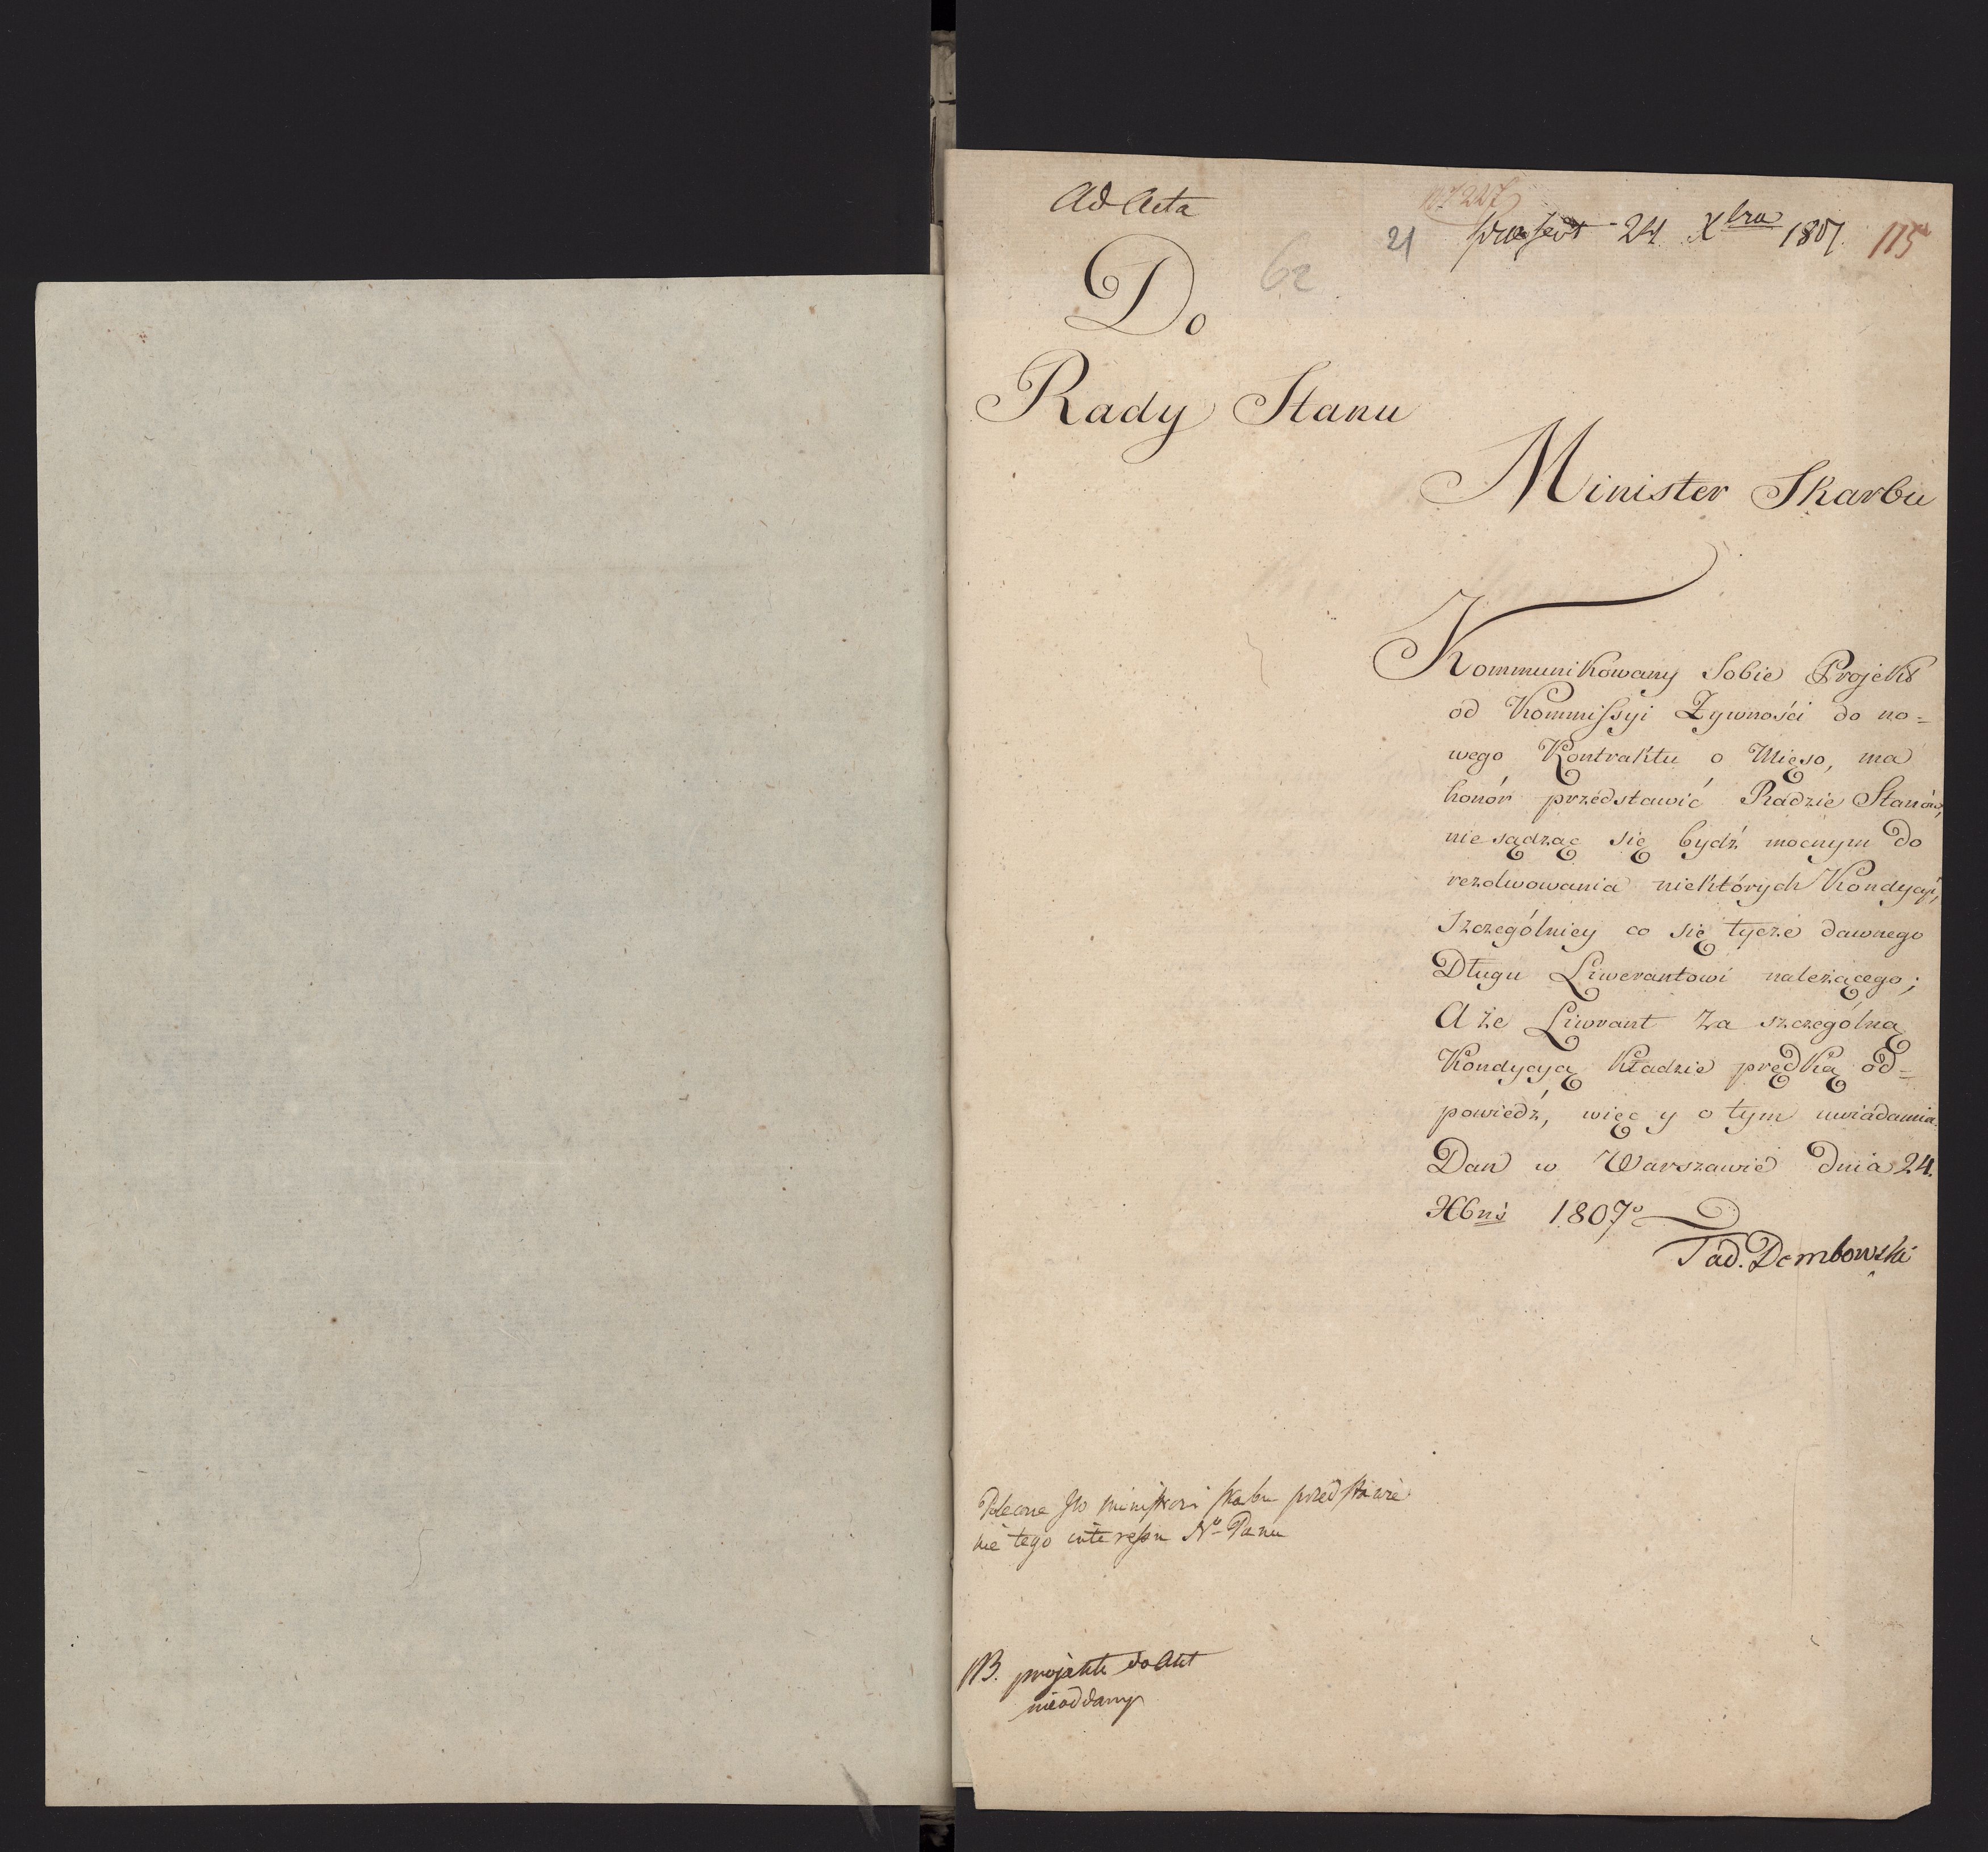 Ad Acta
N 227
21 praesent 24 Xbra 1807. 115
62
Do
Rady Stanu
Minister Skarbu
Kommunikowany Sobie Projekt
od Kommissyi Żywności do no=
wego Kontraktu o Mięso, ma
honór przedstawić Radzie Stanów,
nie sądząc się bydź mocnym do
rezolwowania niektórych Kondycyi,
Szczególniey co się tycze dawnego
Długu Liwerantowi należącego;
A że Liwrant za szczególną
Kondycyą kładzie prędką od=
powiedź, więc y o tym uwiadamia.
Dan w Warszawie Dnia 24.
Xbris 1807o
Tad. Dembowski
Polecone JW Ministrowi Skarbu przedstawie
nie tego interessu No Panu
NB. projekt do Akt
nieoddany